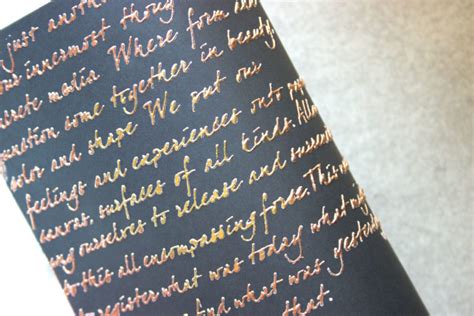 just another
our innermost thoug
ncrete media. Where form and
gunction come together in beauty
color and shape. We put our
feelings and experiences onto pap
canvas, surfaces of all kinds. Allo
ng ourselves to release and succumb
to this all encompassing force. This
to register what was today what wi
find what was yesterday
that.